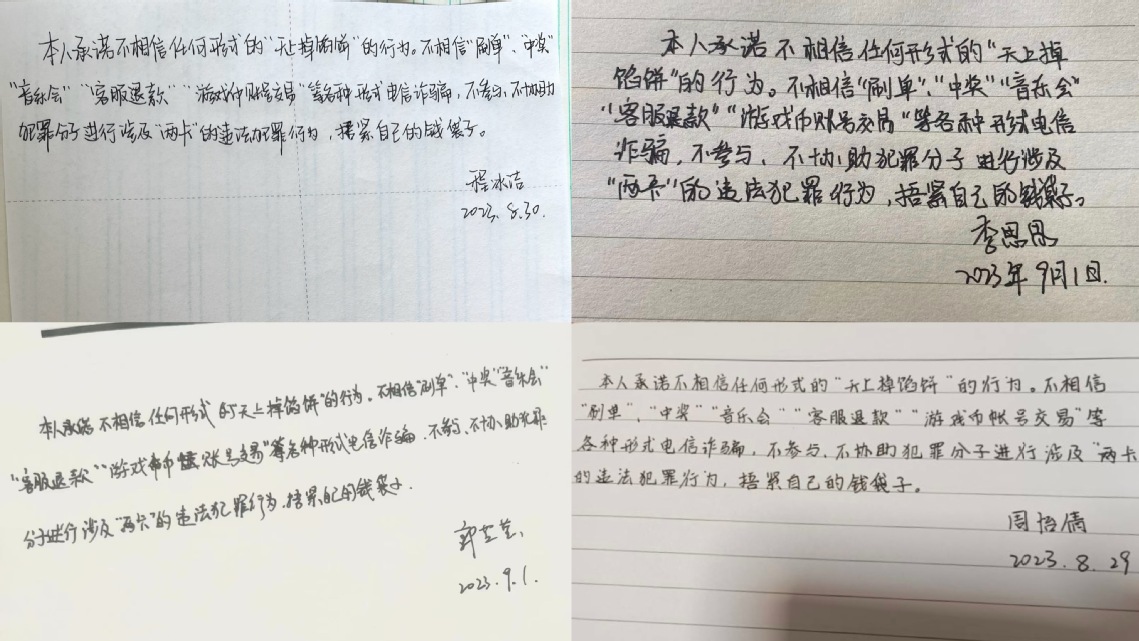 本人承诺不相信任何形式的“天上掉馅饼”的行为。不相信“刷单”、“中奖”
“音乐会”“客服退款”“游戏币账号交易”等各种形式电信诈骗，不参与、不协助
犯罪分子进行涉及“两卡”的违法犯罪行为，捂紧自己的钱袋子。
程冰洁
2023.8.30.
本人承诺不相信任何形式的“天上掉
馅饼”的行为。不相信“刷单”、“中奖”“音乐会”
“客服退款”“游戏币账号交易“等各种形式电信
诈骗，不参与、不协助犯罪分子进行涉及
“两卡”的违法犯罪行为，捂紧自己的钱袋子。
李思凤
2023年9月1日.
本人承诺不相信任何形式的“天上掉馅饼”的行为。不相信“刷单”、“中奖”“音乐会”
“客服退款”“游戏币账号交易”等各种形式电信诈骗，不参与、不协助犯罪
分子进行涉及“两卡”的违法犯罪行为，捂紧自己的钱袋子.
郭
2023.9.1.
本人承诺不相信任何形式的“天上掉馅饼”的行为。不相信
“刷单”、“中奖”“音乐会”“客服退款”“游戏币帐号交易”等
各种形式电信诈骗，不参与、不协助犯罪分子进行涉及“两卡
的违法犯罪行为，捂紧自己的钱袋子。
周悟倩
2023.8.29